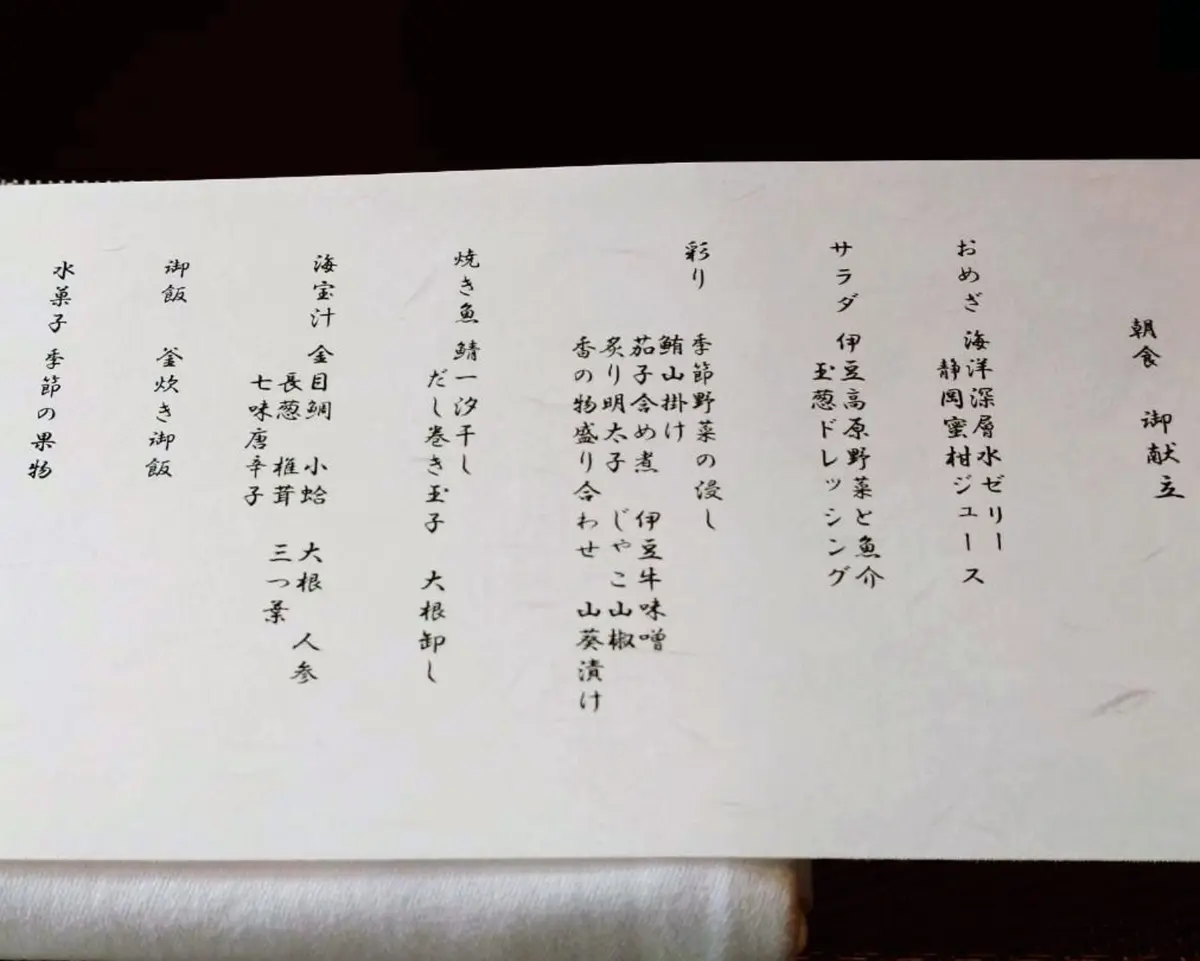 朝食　御献立
おめざ　海洋深層水ゼリー
静岡蜜柑ジュース
サラダ　伊豆高原野菜と魚介
玉葱ドレッシング
彩り　季節野菜の浸し
鮪山掛け
茄子含め煮　伊豆牛味噌
炙り明太子　じゃこ山椒
香の物盛り合わせ　山葵漬け
焼き魚　鯖一汐干し
だし巻き玉子　大根卸し
海宝汁　金目鯛　小蛤　大根　人参
長葱　椎茸　三つ葉
七味唐辛子
御飯　釜炊き御飯
水菓子　季節の果物